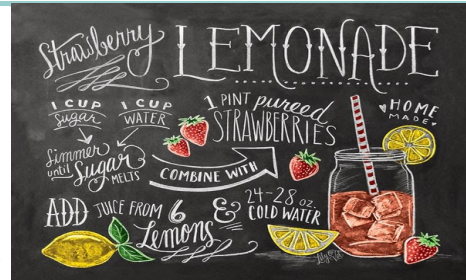 Strawberry LEMONADE
1 CUP Sugar
1 CUP WATER
Simmer until Sugar MELTS
1 PINT pureed STRAWBERRIES
COMBINE WITH
HOME MADE
ADD JUICE FROM 6 Lemons & 24-28 oz. COLD WATER